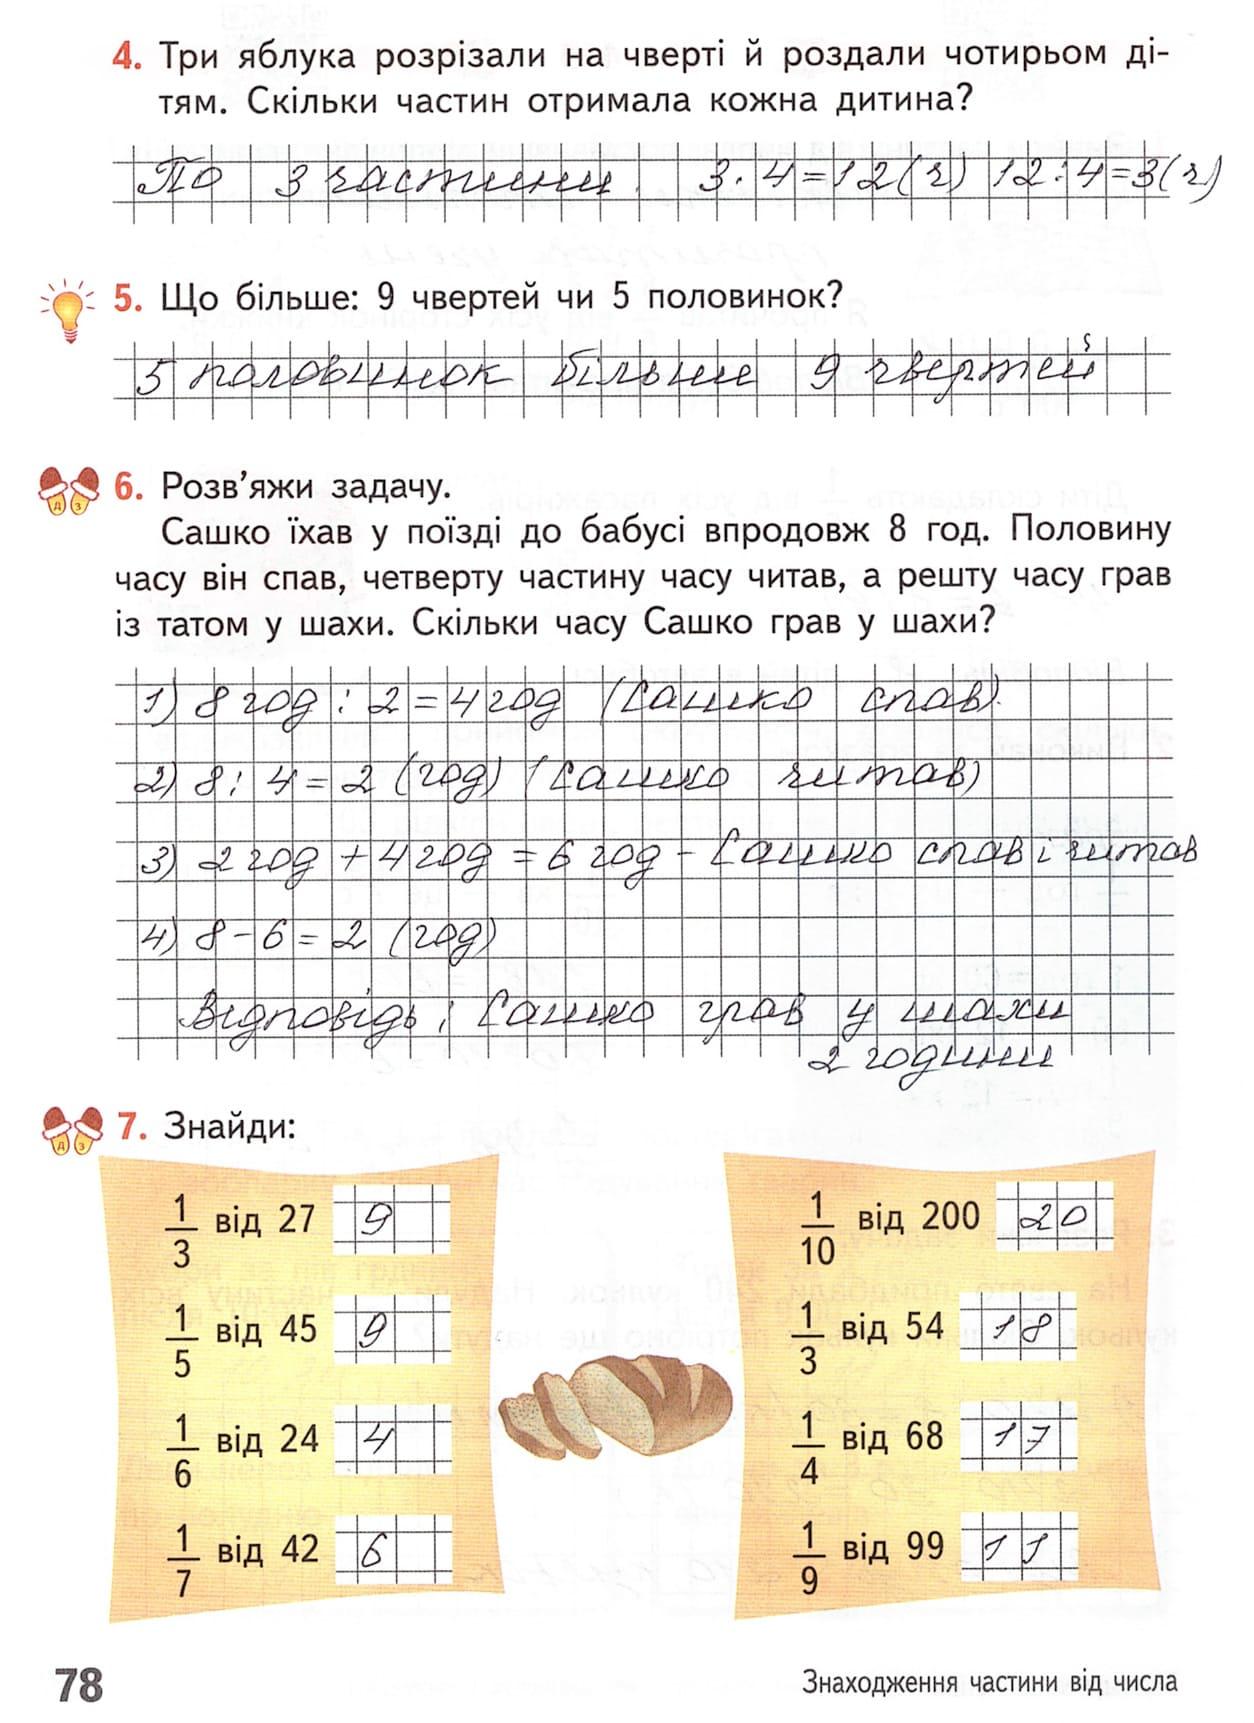 4. Три яблука розрізали на чверті й роздали чотирьом ді-
тям. Скільки частин отримала кожна дитина?
По 3 частини. 3·4=12(ч) 12:4=3(ч)
5. Що більше: 9 чвертей чи 5 половинок?
5 половинок більше 9 чвертей
6. Розв’яжи задачу.
Сашко їхав у поїзді до бабусі впродовж 8 год. Половину
часу він спав, четверту частину часу читав, а решту часу грав
із татом у шахи. Скільки часу Сашко грав у шахи?
1) 8 год : 2 = 4 год (Сашко спав).
2) 8 : 4 = 2 (год) (Сашко читав)
3) 2 год + 4 год = 6 год - Сашко спав і читав
4) 8 - 6 = 2 (год)
Відповідь: Сашко грав у шахи
2 години
Д З
7. Знайди:
1/3 від 27 9
1/5 від 45 9
1/6 від 24 4
1/7 від 42 6
1/10 від 200 20
1/3 від 54 18
1/4 від 68 17
1/9 від 99 11
78
Знаходження частини від числа